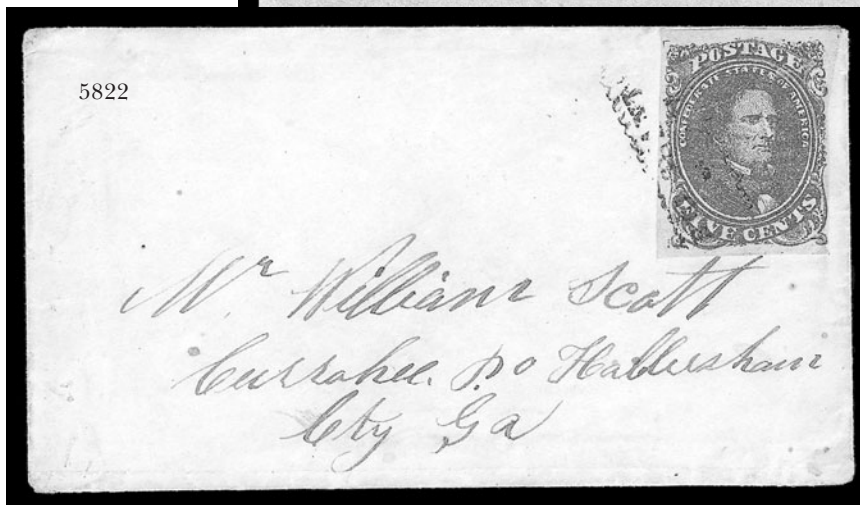 5822
POSTAGE
CONFEDERATE STATES OF AMERICA
FIVE CENTS
Mr William Scott
Currahee. P.o Habbersham
Cty Ga